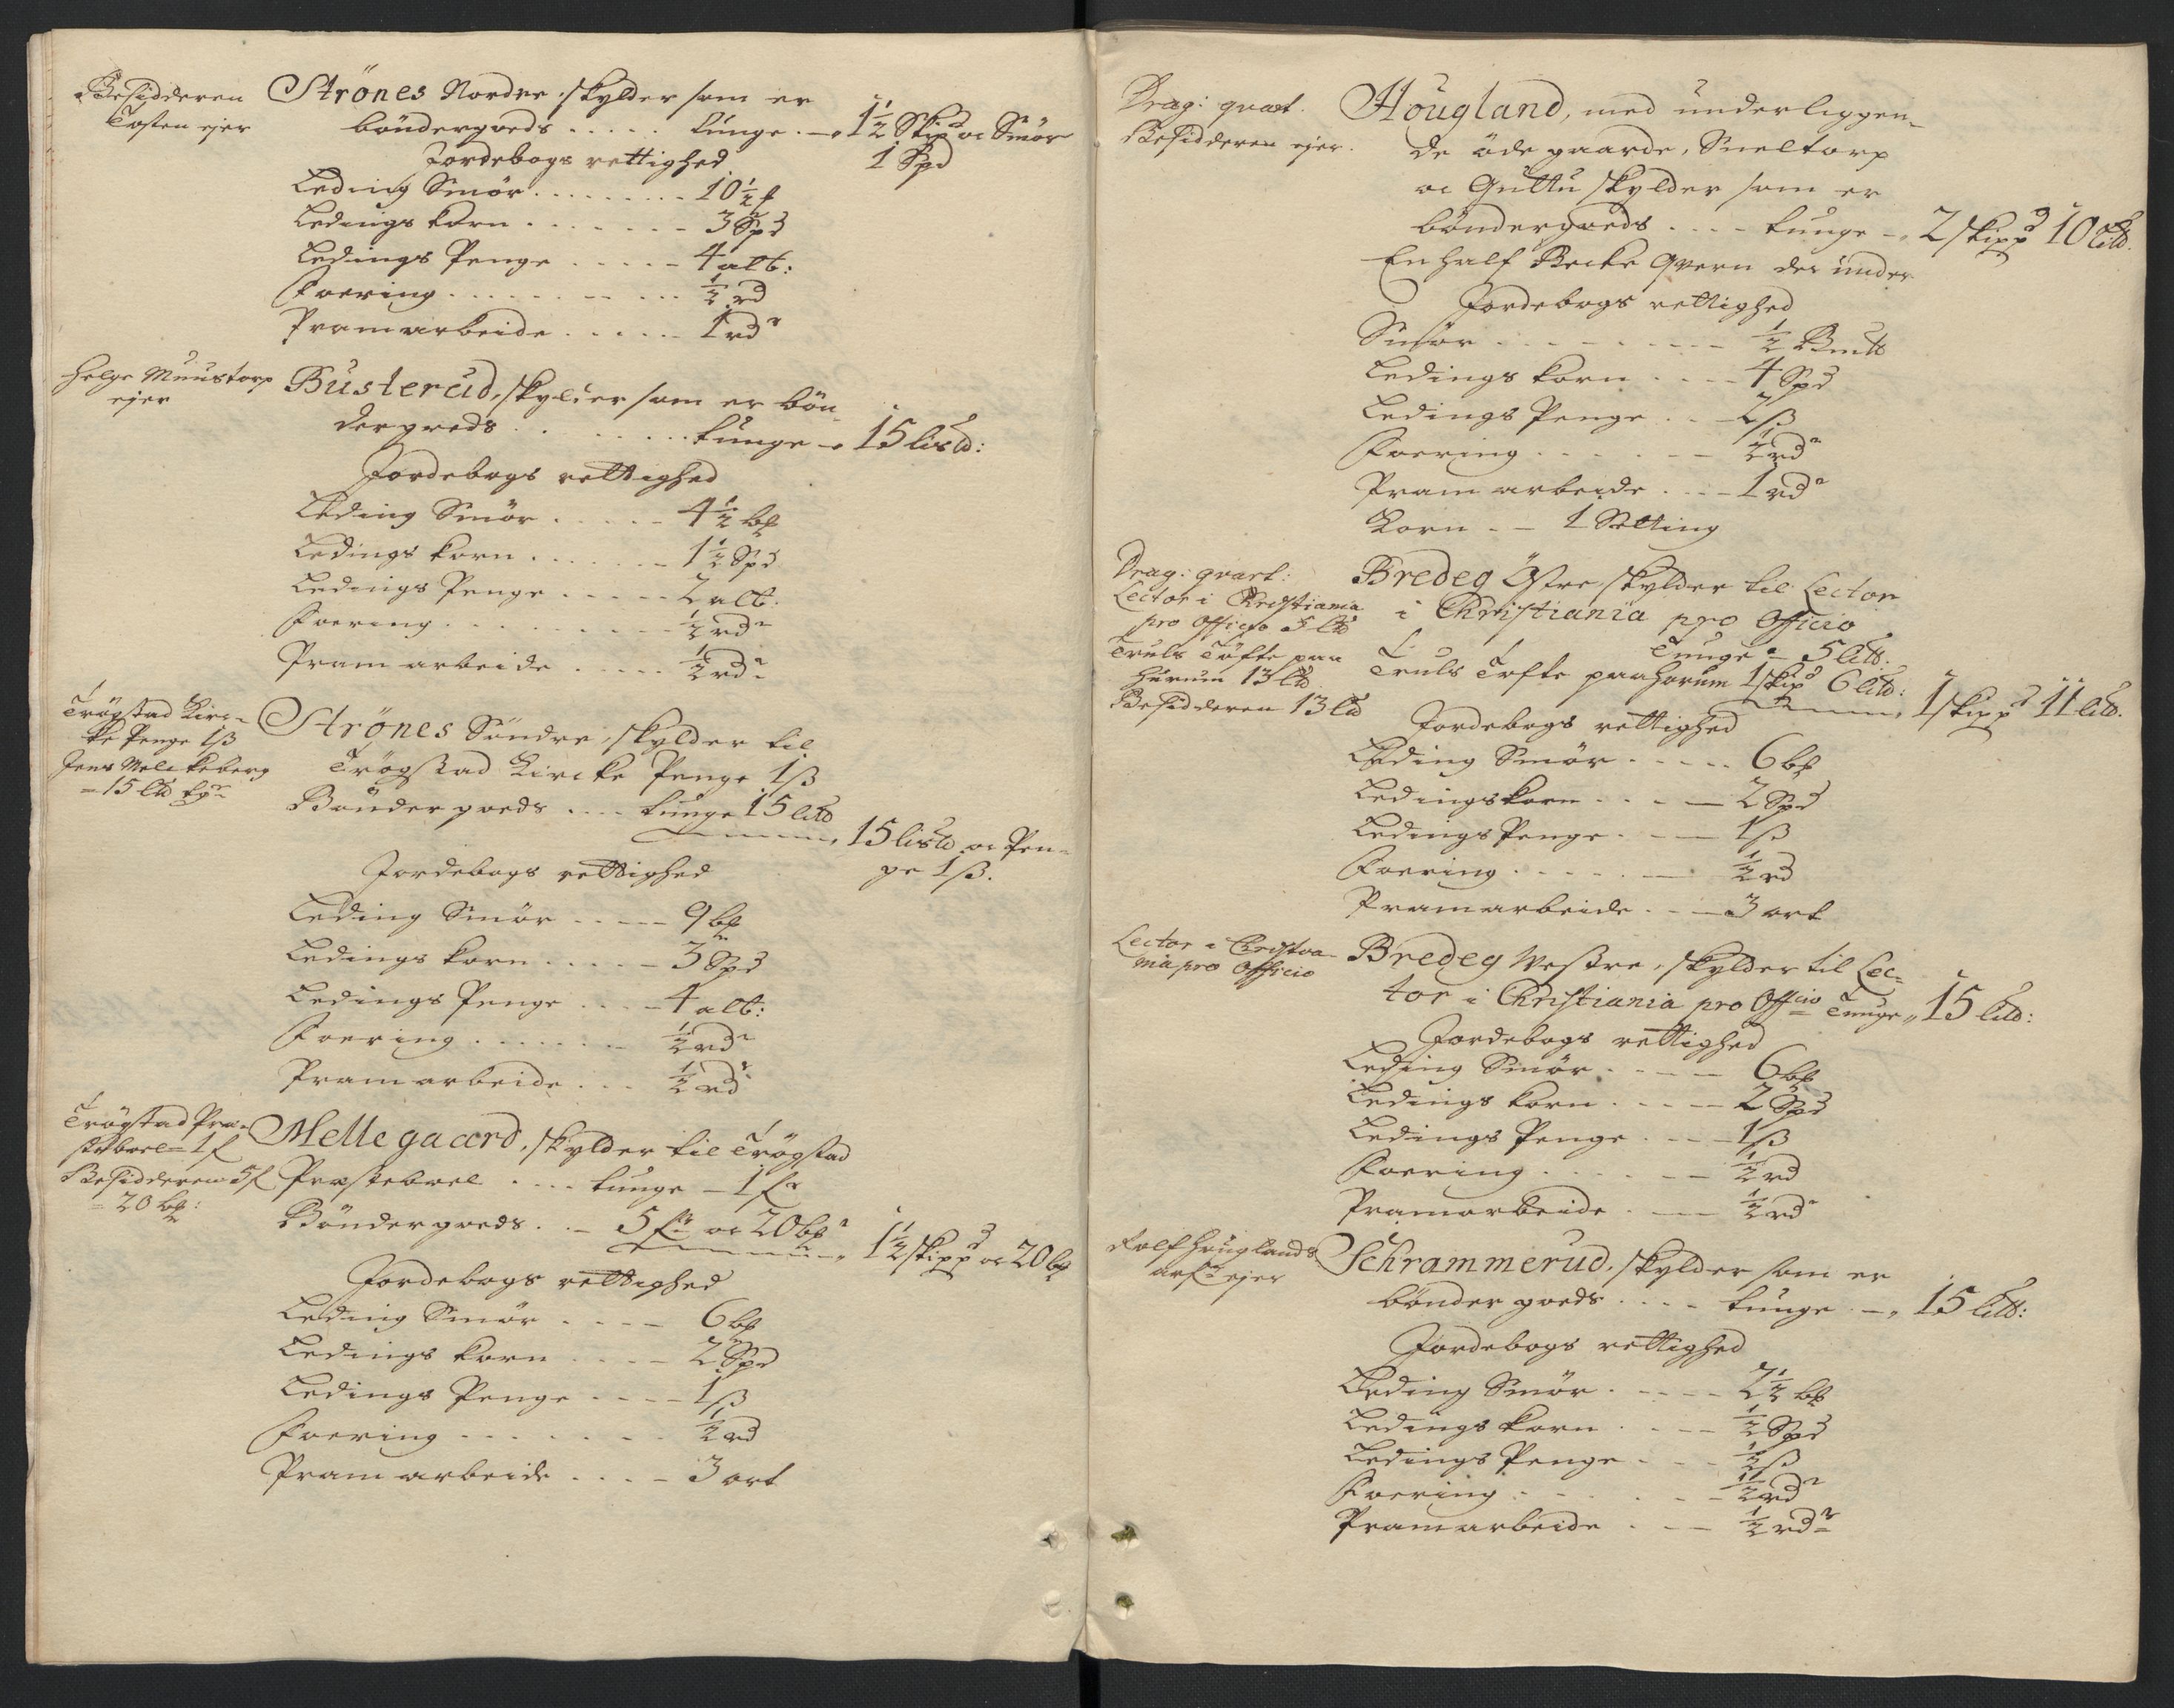 Besidderen
Tosten ejer
Strönes Nordre, skylder som er
böndergoeds ..... tunge. - 1½ Skip oc Smör
1 Spd
Jordebogs rettighed
Leding Smör ......... 10½ #
Ledings korn ....... 3 Spd
Ledings Penge ..... 4 alb:
Foering ........... ½ rd
Pramarbeide ...... 1 rdr
Helge Muustorp
ejer
Busterud, skylder som er bön
dergoeds ........ tunge - 15 lisd:
Jordebogs rettighed
Leding Smör ..... 4½ bs
Ledings korn ....... 1½ Spd
Ledings Penge ..... 2 alb:
Foering ......... ½ rdr
Pram arbeide .... ½ rdr
Trögstad Kirc-
ke Penge 1 ß
Jens Melckeberg
= 15 ltd
Strönes Söndre, skylder til
Trögstad Kircke Penge 1 ß
Bönder goeds .... tunge 15 litd
15 lisd oc Pen-
ge 1 ß.
Jordebogs rettighed
Leding Smör ..... 9 bs
Ledings korn ..... 3 Spd
Ledings Penge .... 4 alb:
Foering ...... ½ rdr
Pramarbeide ... ½ rdr
Trögstad Præ-
steboel = 1 f
Besidderen 5 f
= 20 bs:
Mellegaard, skylder til Trögstad
Præsteboel .... tunge - 1 fr
Bönder goeds .. 5 fr oc 20 bs
1½ skippd oc 20 bs
Jordebogs rettighed
Leding Smör .... 6 bs
Ledings korn .... 2 Spd
Ledings Penge .... 1 ß
Foering ....... ½ rd
Pram arbeide .... 3 ort
Drag: qvart.
Besidderen ejer.
Hougland, med underliggen-
de öde gaarde, Sneltorp
oc Guttu skylder som er
böndergoeds .... tunge - 2 skippd 10 litd.
En half Becke Qvern der under
Jordebogs rettighed
Smör ........ ½
Ledings korn .... 4 Spd
Ledings Penge ... 2 ß
Foering ...... ½ rdr
Pram arbeide .... 1 rdr
Korn -- 1 Setting
Drag: qvart:
Lector i Christiania
pro Officio 5 ltd
Truls Tofte paa
Hurum 13 ltd
Besidderen 13 ltd
Bredeg Östre, skylder til Lector
i Christiania pro Officio
Tunge = 5 litd.
Truls Tofte paa Horum 1 skipd 6 litd:
1 skippd 11 litd.
Jordebogs rettighed
Leding Smör ..... 6 bs
Ledingskorn .... 2 Spd
Ledings Penge .... 1 ß
Foering ...... ½ rd
Pramarbeide ... 3 ort
Lector i Christia-
nia, pro Officio
Bredeg Westre, skylder til Lec-
tor i Christiania pro Officio Tunge „ 15 litd:
Jordebogs rettighed
Leding Smör ..... 6 bs
Ledings korn .... 2 Spd
Ledings Penge .... 1 ß
Foering ...... ½ rd
Pramarbeide .... ½ rdr
Rolf Houglands
arf: ejer
Schrammerud, skylder som er
bönder goeds .... tunge - 15 litd:
Jordebogs rettighed
Leding Smör ..... 2½ bs
Ledings korn .... ½ Spd
Ledings Penge ... ½ ß
Foering ...... ½ rdr
Pramarbeide .... ½ rdr